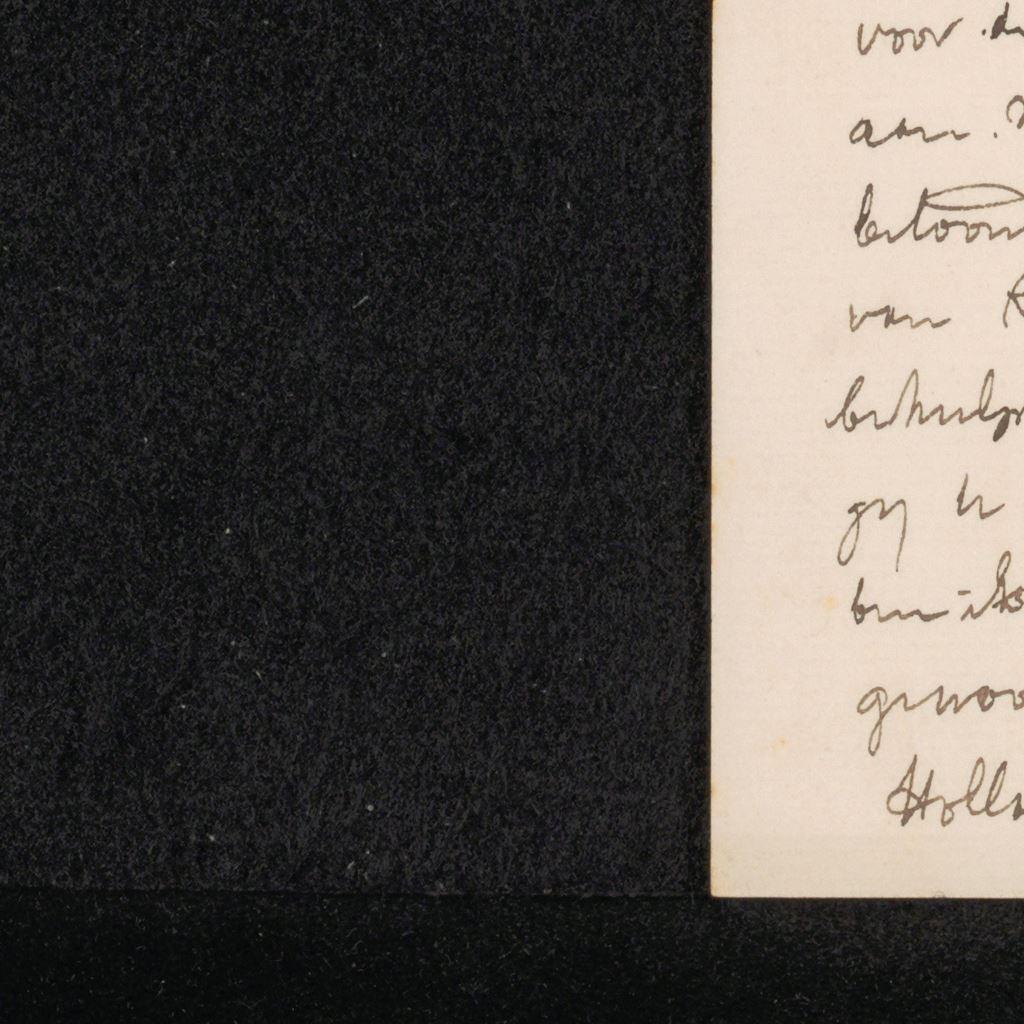 voor
aan
betoon
van
behulp
gy te
ben ik
genoo
Holl